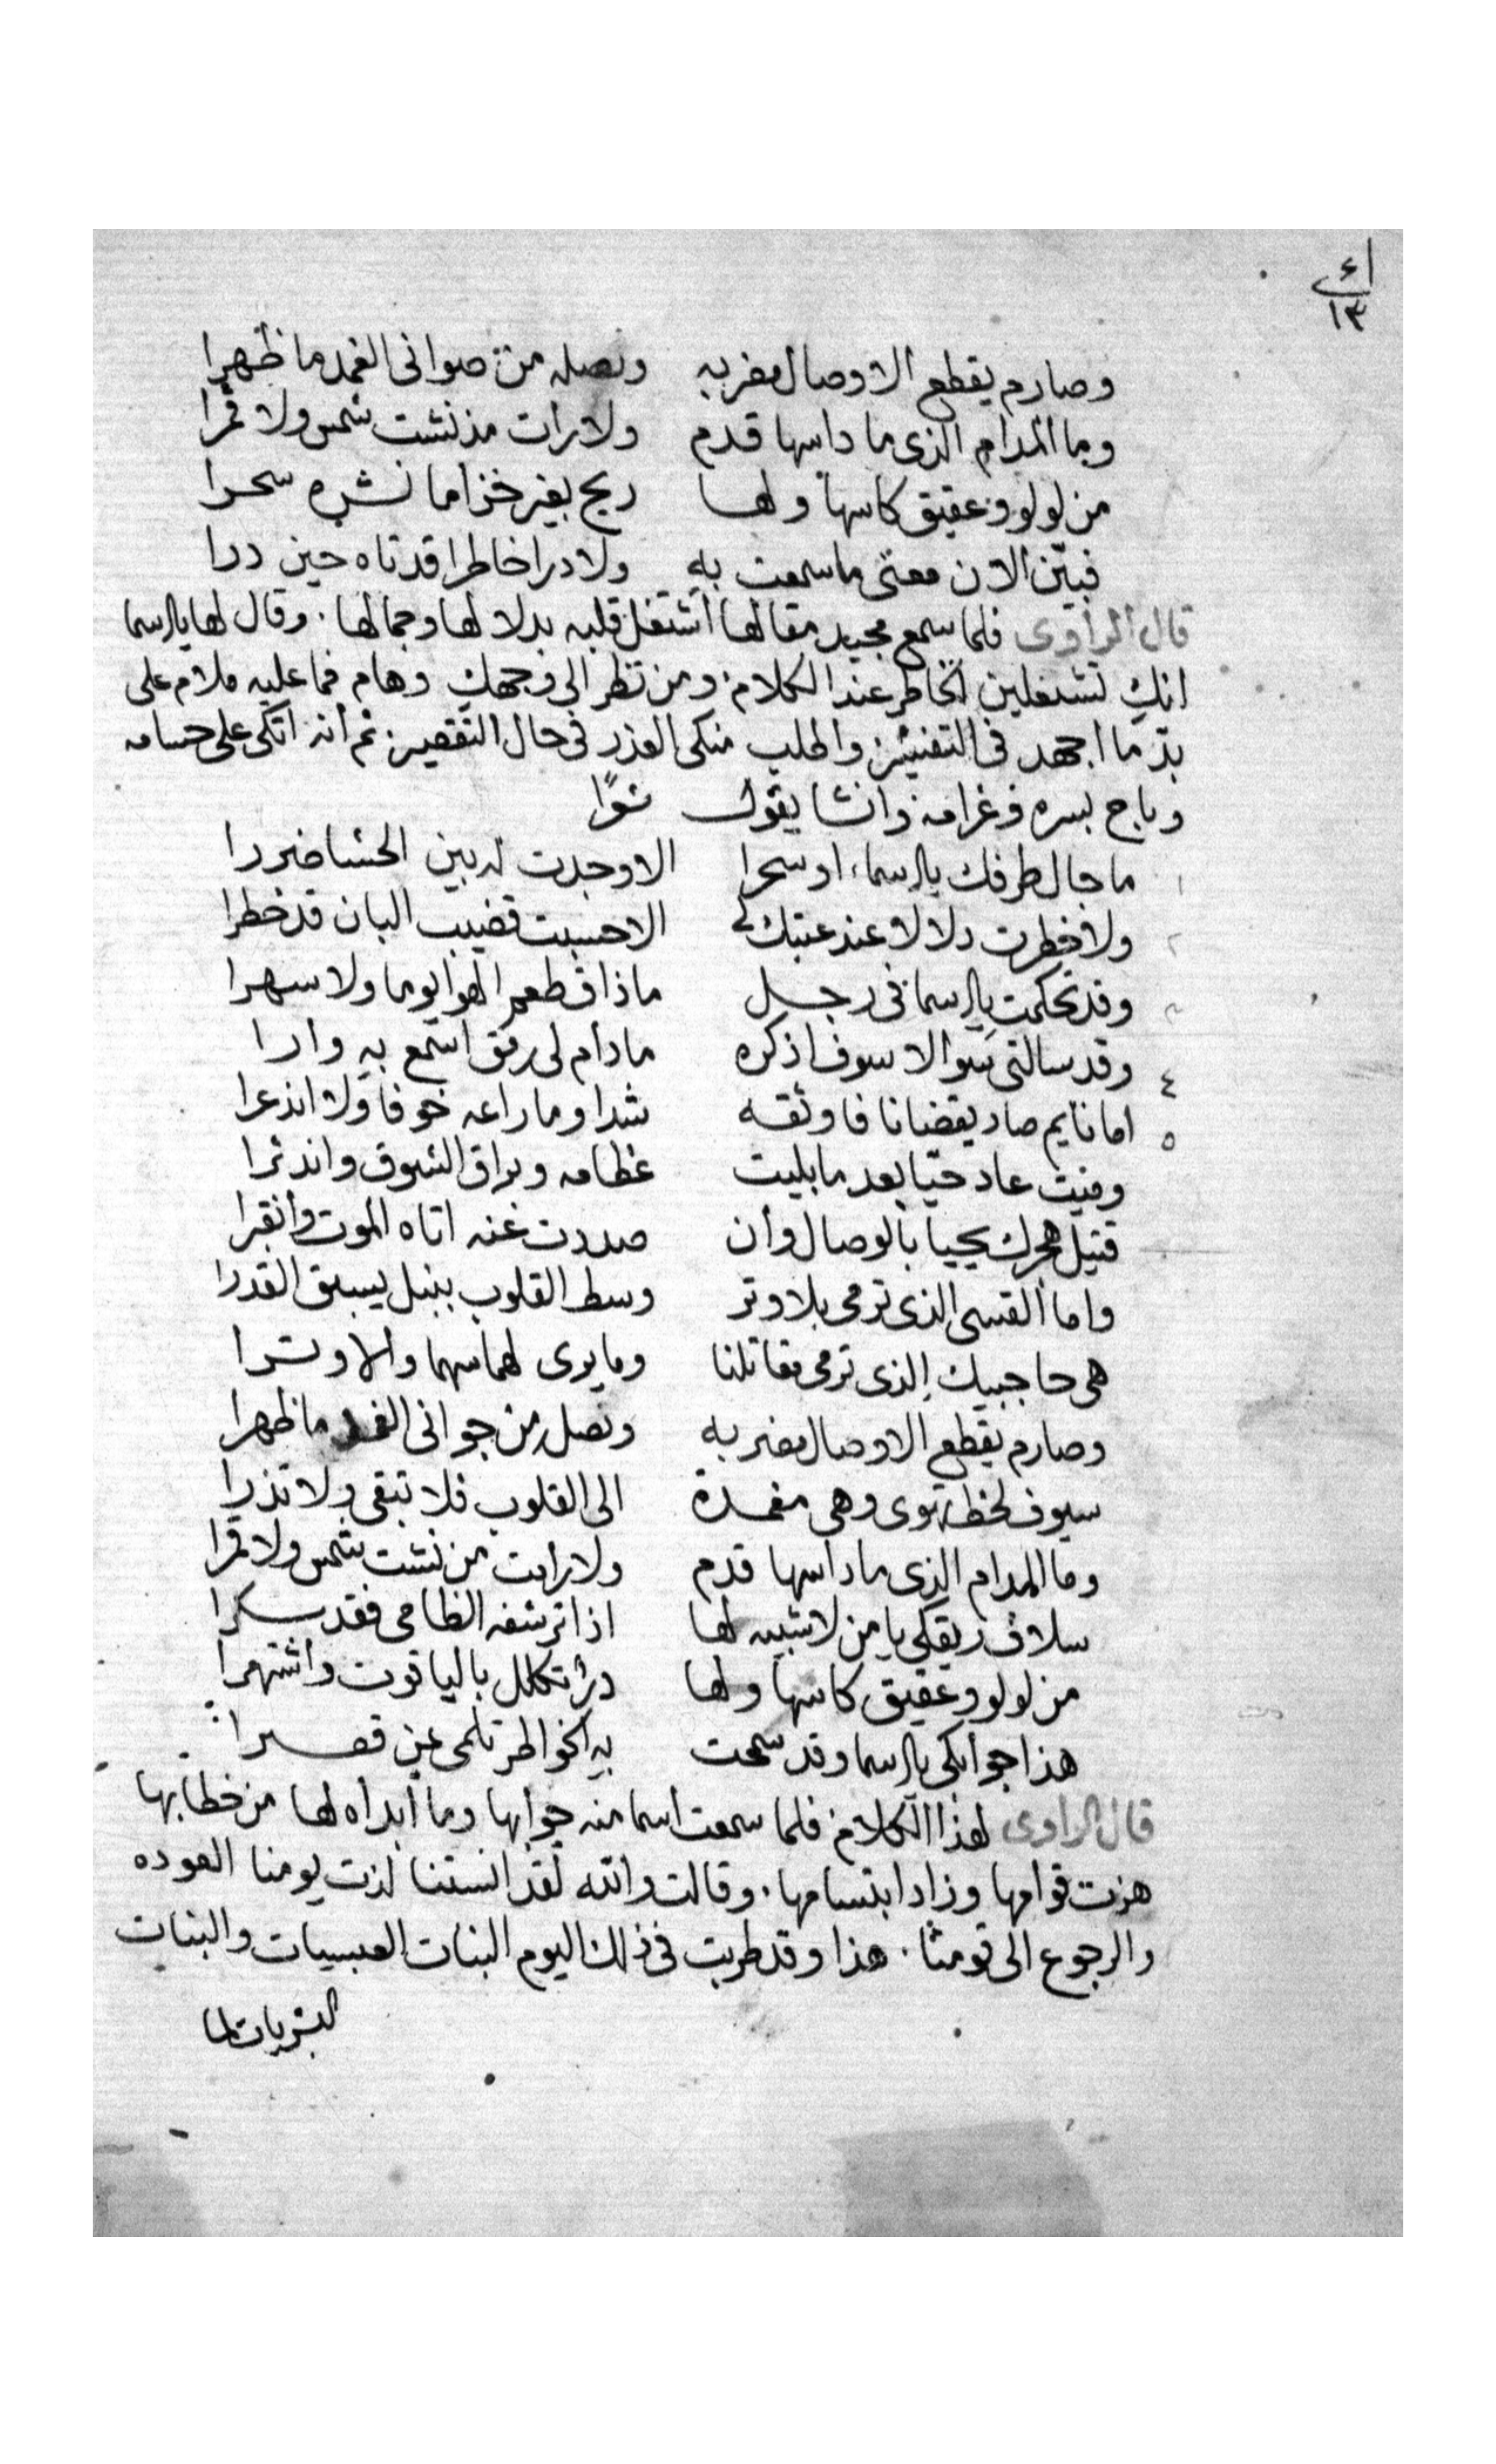 ١٤
١٣
وصارم يقطع الاوصال مضربه ونصله من صوانى الغمد ما ظهرا
وما المدام الذى ما داسها قدم ولا رات مذ نشت شمس ولا قمرا
من لولو وعقيق كاسها ولها ريح بغير خزاما نشره سحرا
فبيّن الان معنى ما سمعت به ولا درا خاطرا قد تاه حين درا
قال الراوى فلما سمع مجيد مقالها اشتغل قلبه بدلالها وجمالها. وقال لها يا اسما
انك تشغلين الخاطر عند الكلام. ومن نظر الى وجهك وهام فما عليه ملام على
بذ ما اجهد فى التفتيش واطلب منكى العذر فى حال التقصير. ثم انه اتكى على حسامه
وباح بسره وغرامه وانشا يقول شعرًا
١ ما جال طرفك يا اسماء او سحرا الا وجدت له بين الحشا ضررا
٢ ولا خطرت دلالا عند عتبك لى الا حسبت قضيب البان قد خطرا
٣ وقد تحكمت يا اسما فى رجل ما ذاق طعم الهوا يوما ولا سهرا
٤ وقد سالتى سوالا سوف اذكره مادام لى رمق اسمع به وارا
٥ اما نايم صاد يقضانا فاوثقه شدا وما راعه خوفا ولا انذعرا
وميت عاد حيّا بعد ما بليت عظامه وبراق الشوق واندثرا
قتيل هجرك يحيا بالوصال وان صددت عنه اتاه الموت وانقبرا
واما القسى الذى ترمى بلا وتر وسط القلوب بنبل يسبق القدرا
هى حاجبيك الذى ترمى مقاتلنا وما يرى لهما سهما ولا وترا
وصارم يقطع الاوصال مضربه ونصله من جوانى الغمد ما ظهرا
سيوف لحظ تهوى وهى مغمدة الى القلوب فلا تبقى ولا تذرا
وما المدام الذى ما داسها قدم ولا رات من نشت شمس ولا قمرا
سلاف ريقكى يا من لا شبيه لها اذا ترشفه الظامى فقد سكرا
من لولو وعقيق كاسها ولها درّ تكلل بالياقوت واشتهرا
هذا جوابكى يا اسما وقد سمحت به الخواطر تلمى عن قصرا
قال الراوى لهذا الكلام فلما سمعت اسما منه جوابها وما ابداه لها من خطابها
هزت قوامها وزاد ابتسامها. وقالت والله لقد انستنا لذت يومنا العوده
والرجوع الى قومنا. هذا وقد طربت فى ذلك اليوم البنات العبسيات والبنات